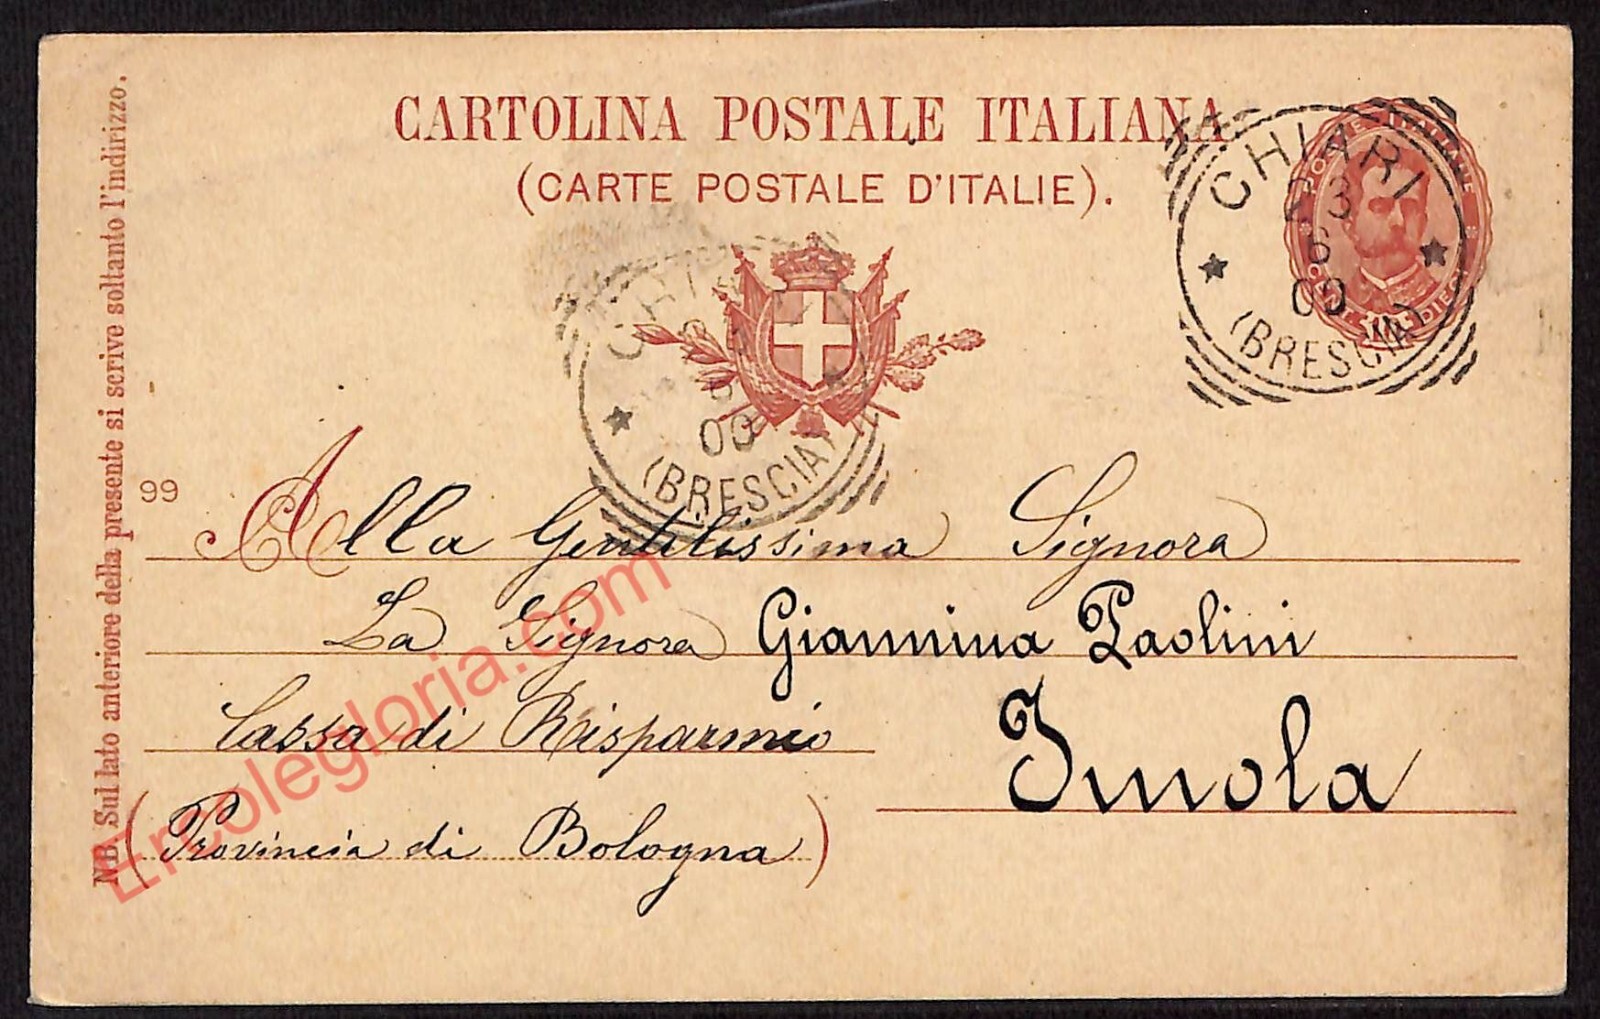 CARTOLINA POSTALE ITALIANA
(CARTE POSTALE D'ITALIE).
CHIARI
3
6
00
(BRESCIA)
00
(BRESCIA)
NB. Sul lato anteriore della presente si scrive soltanto l'indirizzo.
99
Alla Gentilissima Signora
La Signora Giannina Paolini
Cassa di Risparmio
Imola
(Provincia di Bologna)
Ercolegloria.com